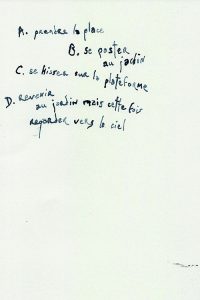 A. prendre la place
B. se poster
au jardin
C. se hisser sur la plateforme
D. revenir
au jardin mais cette fois
regarder vers le ciel